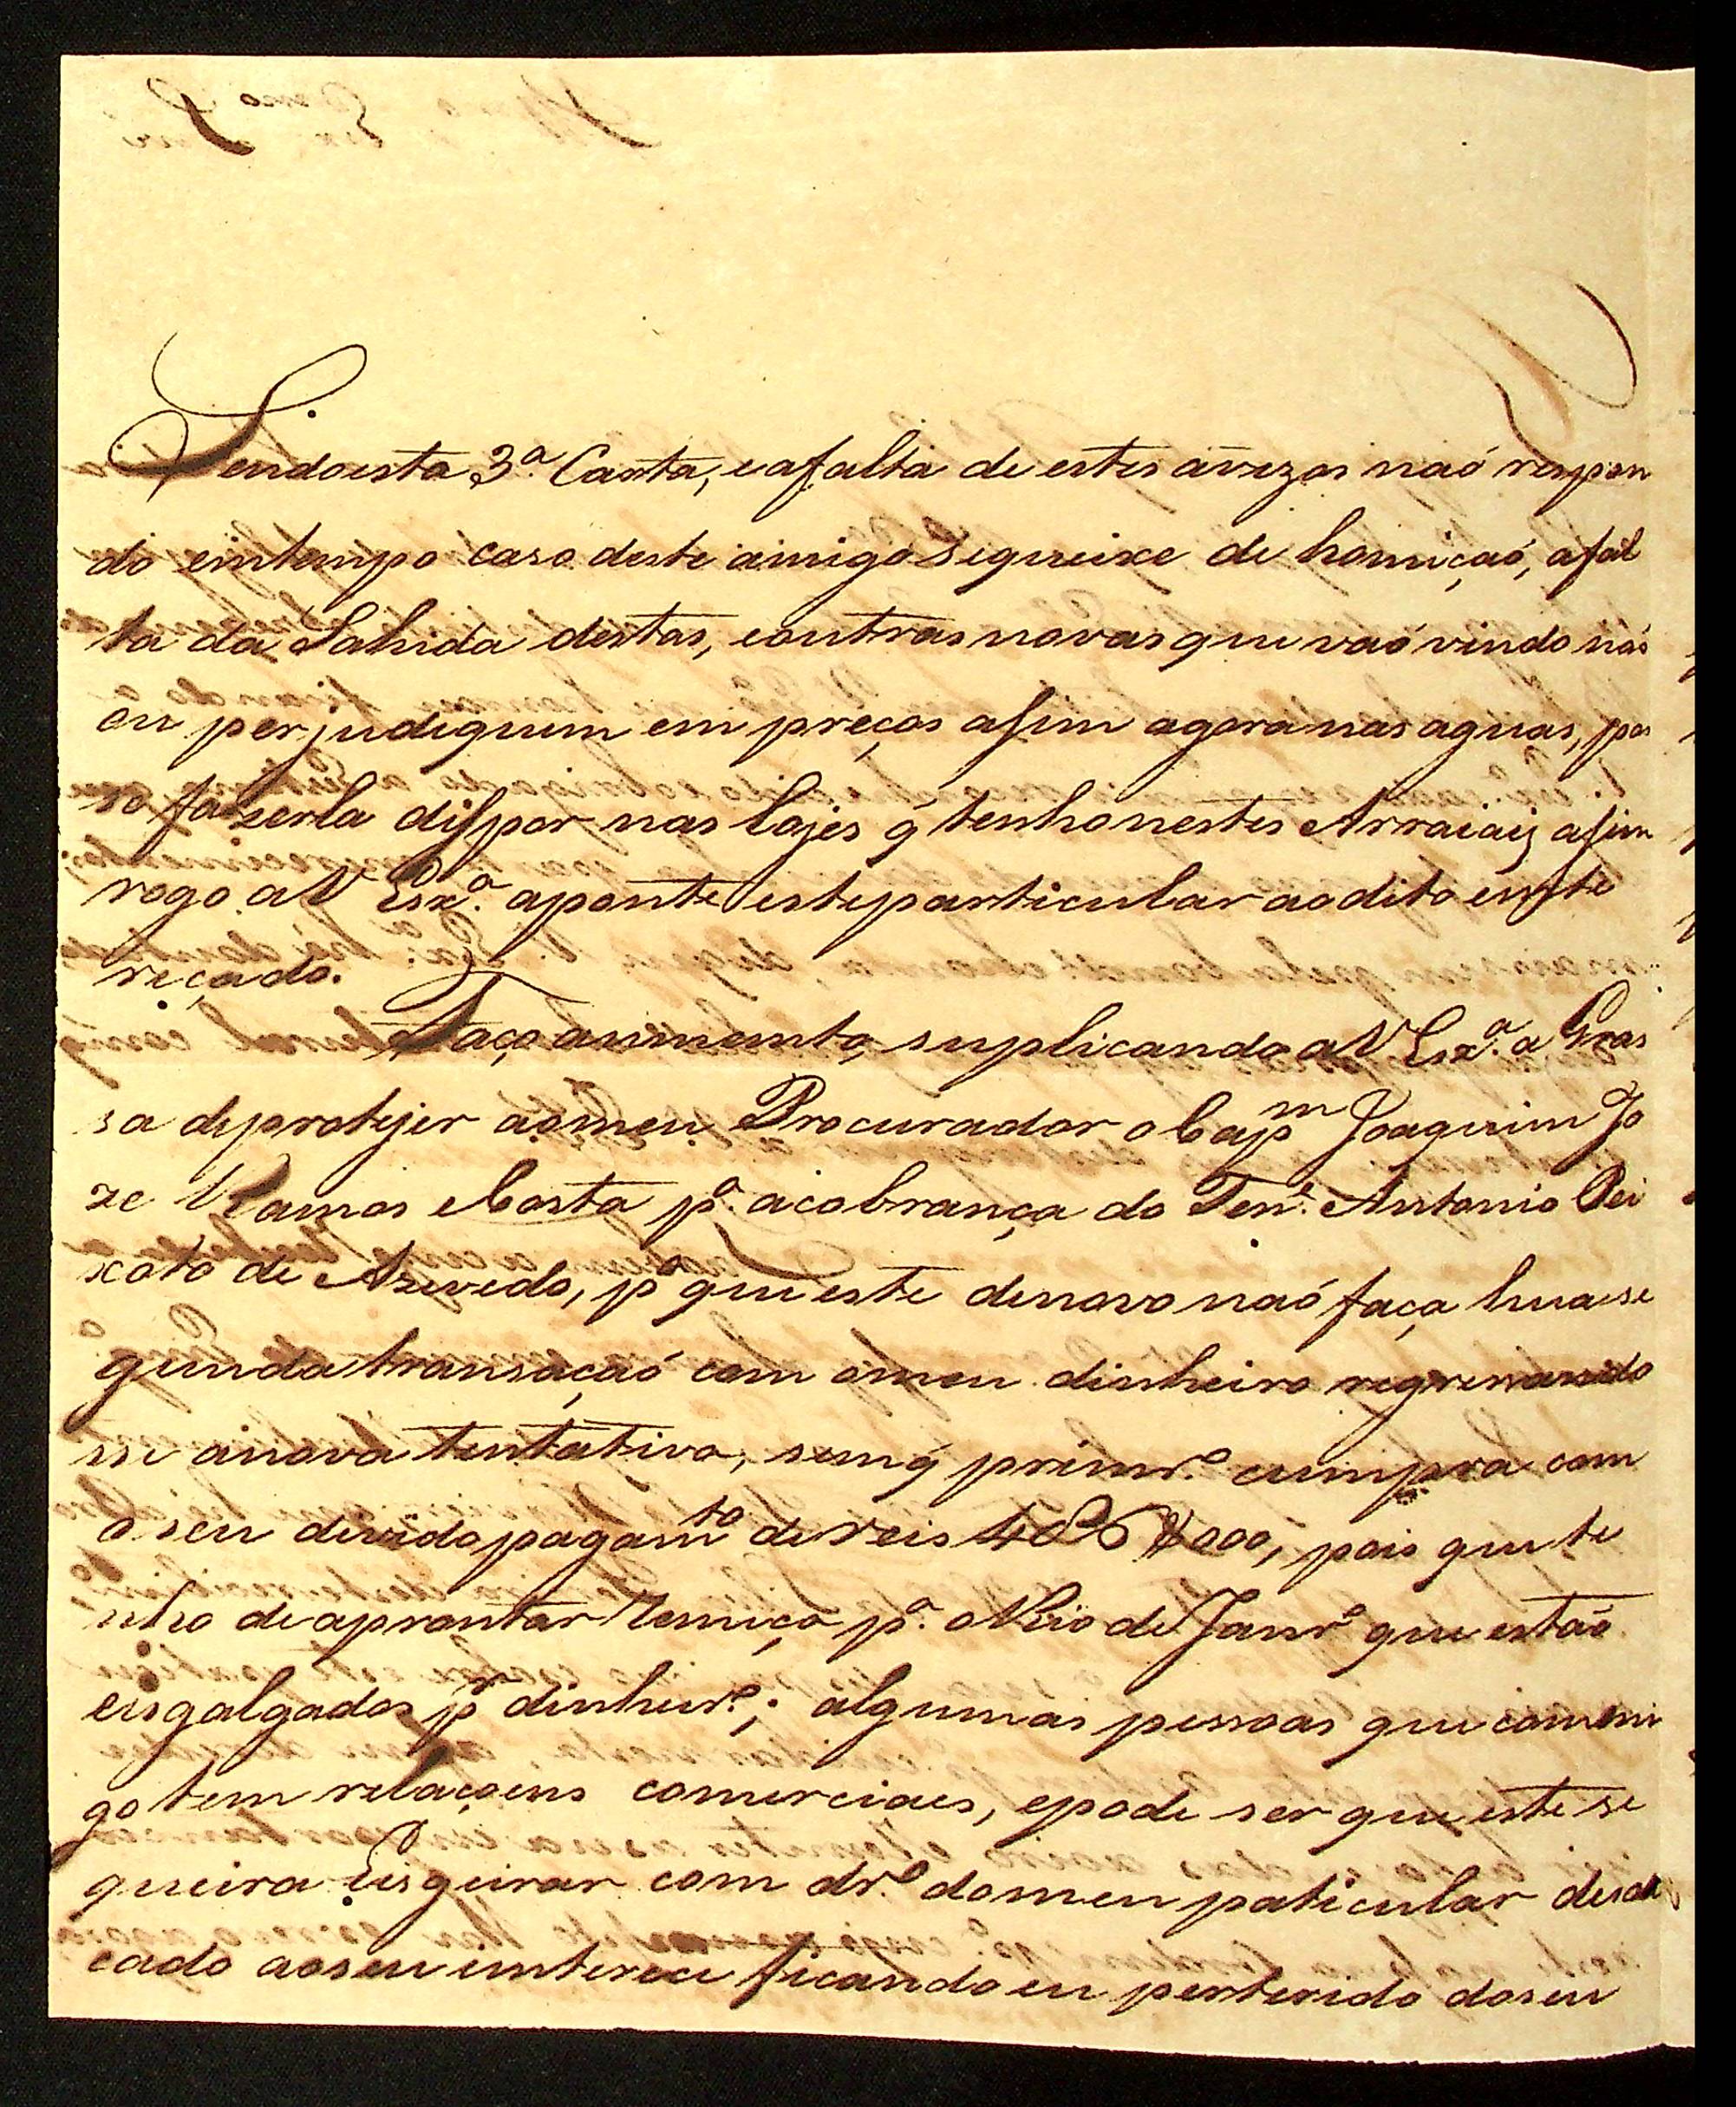 Sendo esta 3.ª Carta, e afalta de estes avizos naó respon
do emtempo caso deste amigo sequeixe de homiçaó, afal
ta da Sahida destas, eoutras novas que vaó vindo nos
ou perjudiquem em preços asim agora nas aguas, pos
so fazerla dispor nas lojes q̃ tenho nestes Arraiais asim
rogo a V Exª. aponte este particular ao dito
reçado.
Faço aumento, suplicando a V Exª. a Gras
sa deprotejer aomeu Procurador o Capm Joaquim Jo
ze Ramos e Costa pª. acobrança do Tene. Antonio Pei
xoto de Azevedo, pª que este denovo naó faça hua se
gunda transaçaó com omeu dinheiro
sse anova tentativa, semq̃ primrº. cumpra com
o seu divido pagamto de reis 486$000, pois que te
nho de aprontar Remiça pª. o Rio de Janrº que estaó
esgalgados pr dinheirº.; algumas pessoas que comni
go tem relaçoens comerciaes, epode ser que este se
queira esgueirar com drº. domeu paticular
cado aoseu interece ficando eu perterido doseu